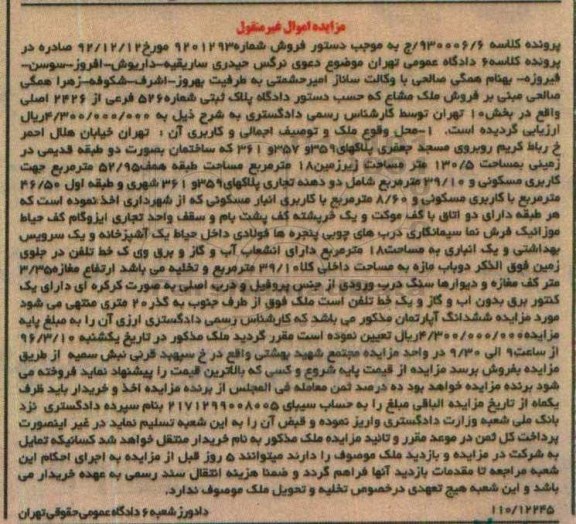 مزایده اموال غیرمنقول
پرونده کلاسه ۹۳۰۰۰۶/۶/ج به موجب دستور فروش شماره۹۲۰۱۲۹۳ مورخ۹۲/۱۲/۱۲ صادره در
پرونده کلاسه۶ دادگاه عمومی تهران موضوع دعوی نرگس حیدری ساریقیه-داریوش-افروز-سوسن-
فیروزه- بهنام همگی صالحی با وکالت ساناز امیرحشمتی به طرفیت بهروز-اشرف-شکوفه-زهرا همگی
صالحی مبنی بر فروش ملک مشاع که حسب دستور دادگاه پلاک ثبتی شماره۵۲۶ فرعی از ۲۴۲۶ اصلی
واقع در بخش۱۰ تهران توسط کارشناس رسمی دادگستری به شرح ذیل به ۴/۳۰۰/۰۰۰/۰۰۰ریال
ارزیابی گردیده است. ۱-محل وقوع ملک و توصیف اجمالی و کاربری آن : تهران خیابان هلال احمر
خ رباط کریم روبروی مسجد جعفری پلاکهای۳۵۹و ۳۵۷و ۳۶۱ که ساختمان بصورت دو طبقه قدیمی در
زمینی بمساحت ۱۳۰/۵ متر مساحت زیرزمین۱۸ مترمربع مساحت طبقه همکف۵۲/۹۵ مترمربع جهت
کاربری مسکونی و ۳۹/۱۰ مترمربع شامل دو دهنه تجاری پلاکهای۳۵۹و ۳۶۱ شهری و طبقه اول ۴۶/۵۰
مترمربع با کاربری مسکونی و ۸/۶۰ مترمربع با کاربری انبار مسکونی که از شهرداری اخذ نموده است که
هر طبقه دارای دو اتاق با کف موکت و یک خرپشته کف پشت بام و سقف واحد تجاری ایزوگام کف حیاط
موزائیک فرش نما سیمانکاری درب های چوبی پنجره ها فولادی داخل حیاط یک آشپزخانه و یک سرویس
بهداشتی و یک انباری به مساحت۱۸ مترمربع دارای انشعاب آب و گاز و برق وی ک خط تلفن در جلوی
زمین فوق الذکر دوباب مغازه به مساحت داخلی کلا۳۹/۱۰ مترمربع و تخلیه می باشد ارتفاع مغازه۳/۳۵
متر کف مغازه و دیوارها سنگ درب ورودی از جنس پروفیل و درب اصلی به صورت کرکره ای دارای یک
کنتور برق بدون آب و گاز و یک خط تلفن است ملک فوق از طرف جنوب به گذر۲۰ متری منتهی می شود
مورد مزایده ششدانگ آپارتمان مذکور می باشد که کارشناس رسمی دادگستری ارزی آن را به مبلغ پایه
مزایده۴/۳۰۰/۰۰۰/۰۰۰ریال تعیین نموده است مقرر گردید ملک مذکور در تاریخ یکشنبه ۹۶/۳/۱۰
از ساعت۹ الی ۹/۳۰ در واحد مزایده مجتمع شهید بهشتی واقع در خ سپهبد قرنی نبش سمیه از طریق
مزایده بفروش برسد مزایده از قیمت پایه شروع و کسی که بالاترین قیمت را پیشنهاد نماید فروخته می
شود برنده مزایده خواهد بود ده درصد ثمن معامله فی المجلس از برنده مزایده اخذ و خریدار باید ظرف
یکماه از تاریخ مزایده الباقی مبلغ را به حساب سیبای ۲۱۷۱۲۹۹۰۰۸۰۰۵ بنام سپرده دادگستری نزد
بانک ملی شعبه وزارت دادگستری واریز نموده و قبض آن را به این شعبه تسلیم نماید در غیر اینصورت
پرداخت کل ثمن در موعد مقرر و تائید مزایده ملک مذکور به نام خریدار منتقل خواهد شد کسانیکه تمایل
به شرکت در مزایده و بازدید ملک موصوف را دارند میتوانند ۵ روز قبل از مزایده به اجرای احکام این
شعبه مراجعه تا مقدمات بازدید آنها فراهم گردد و ضمنا هزینه انتقال سند رسمی به عهده خریدار می
باشد و این شعبه هیچ تعهدی درخصوص تخلیه و تحویل ملک موصوف ندارد.
۱۱۰/۱۲۲۴۵ دادورز شعبه ۶ دادگاه عمومی حقوقی تهران